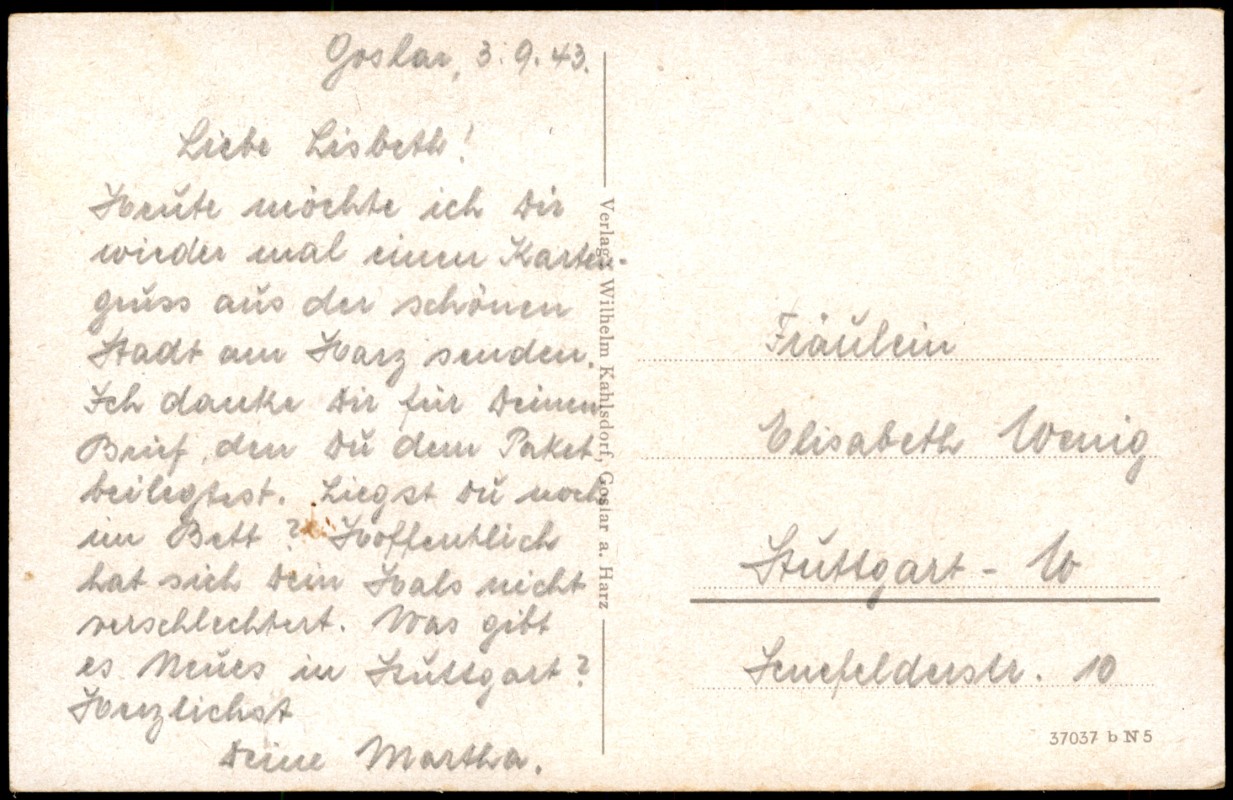 Goslar, 3.9.43.
Liebe Lisbeth!
Heute möchte ich Dir
wieder mal einen Karten-
gruss aus der schönen
Stadt am Harz senden.
Ich danke Dir für Deinen
Brief, den Du dem Paket
beilegtest. Liegst Du noch
im Bett? Hoffentlich
hat sich Dein Hals nicht
verschlechtert. Was gibt
es Neues in Stuttgart?
Herzlichst
Deine Martha.
Verlag: Wilhelm Kahlsdorf, Goslar a. Harz
Fräulein
Elisabeth Wenig
Stuttgart - W
Senefelderstr. 10
37037 b N 5